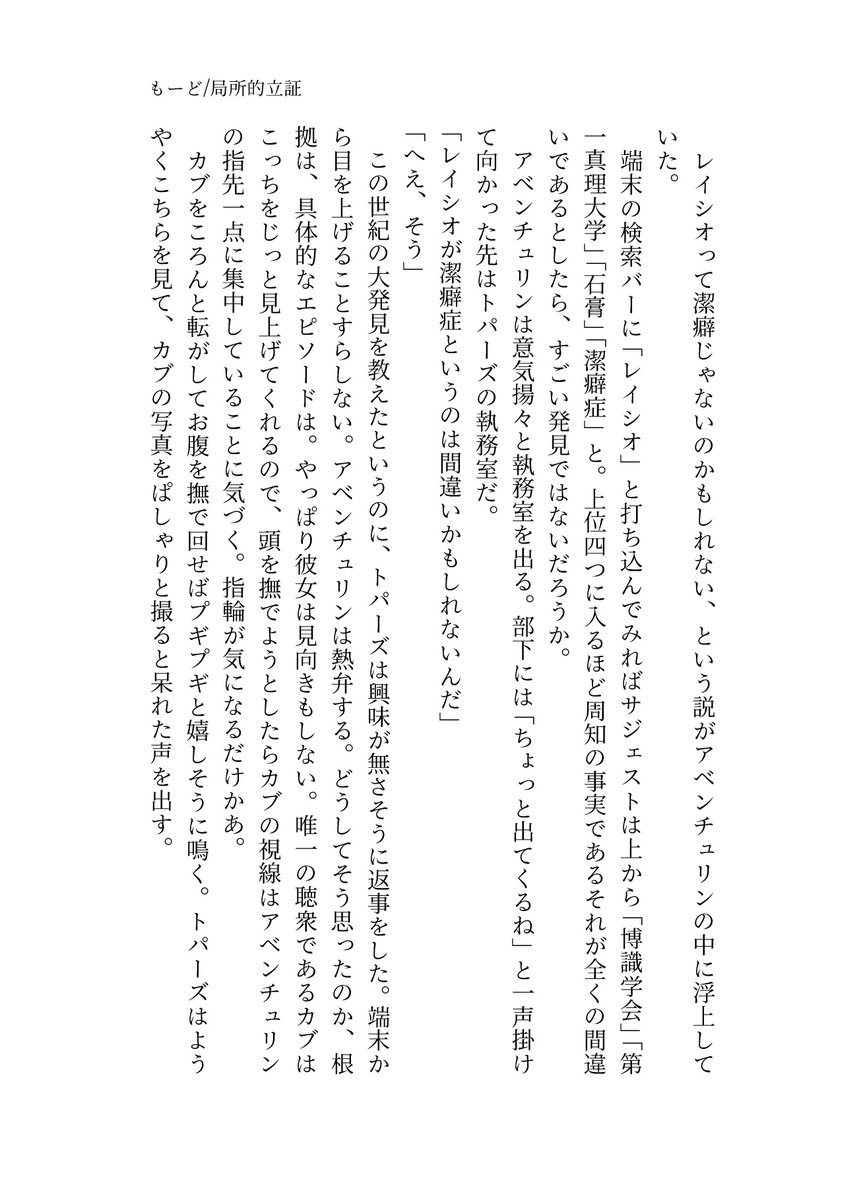 もーど/局所的立証
　レイシオって潔癖じゃないのかもしれない、という説がアベンチュリンの中に浮上して
いた。
　端末の検索バーに「レイシオ」と打ち込んでみればサジェストは上から「博識学会」「第
一真理大学」「石膏」「潔癖症」と。上位四つに入るほど周知の事実であるそれが全くの間違
いであるとしたら、すごい発見ではないだろうか。
　アベンチュリンは意気揚々と執務室を出る。部下には「ちょっと出てくるね」と一声掛け
て向かった先はトパーズの執務室だ。
「レイシオが潔癖症というのは間違いかもしれないんだ」
「へえ、そう」
　この世紀の大発見を教えたというのに、トパーズは興味が無さそうに返事をした。端末か
ら目を上げることすらしない。アベンチュリンは熱弁する。どうしてそう思ったのか、根
拠は、具体的なエピソードは。やっぱり彼女は見向きもしない。唯一の聴衆であるカブは
こっちをじっと見上げてくれるので、頭を撫でようとしたらカブの視線はアベンチュリン
の指先一点に集中していることに気づく。指輪が気になるだけかあ。
　カブをころんと転がしてお腹を撫で回せばプギプギと嬉しそうに鳴く。トパーズはよう
やくこちらを見て、カブの写真をぱしゃりと撮ると呆れた声を出す。